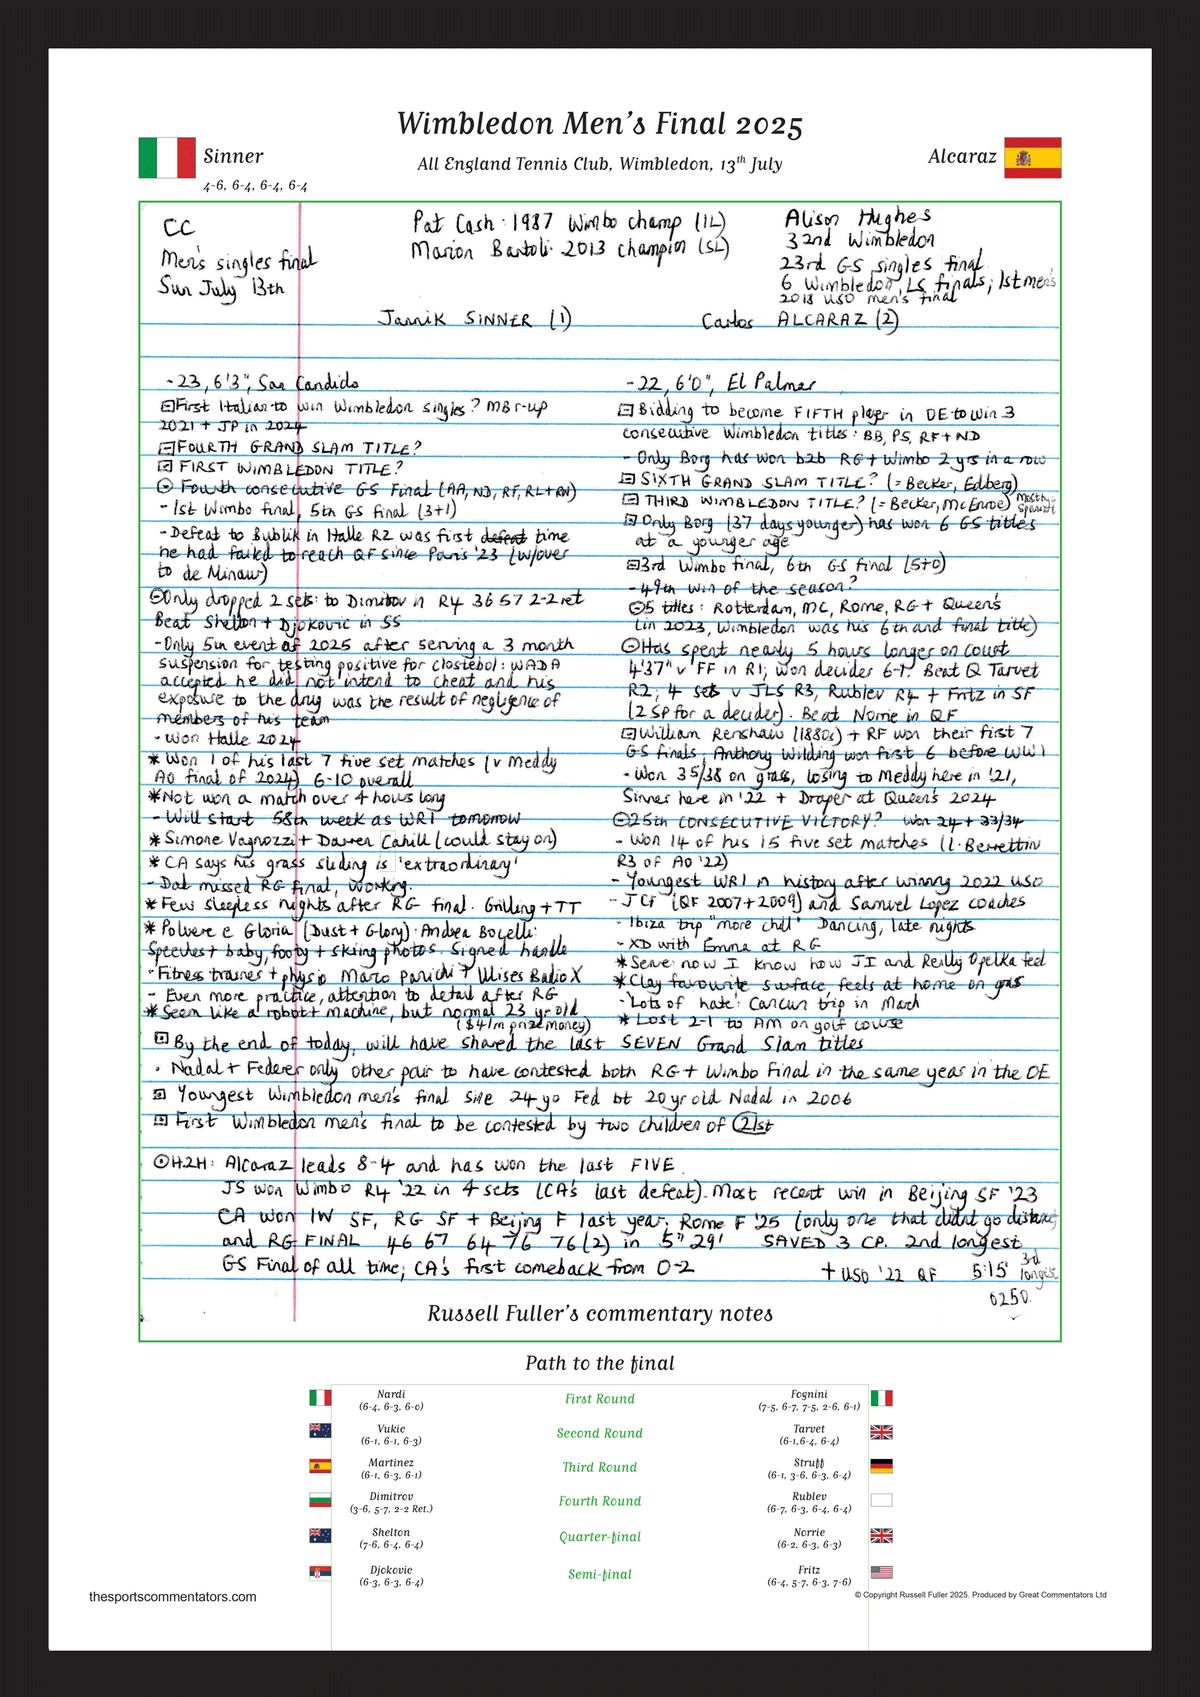 Wimbledon Men's Final 2025
Sinner
All England Tennis Club, Wimbledon, 13th July
Alcaraz
4-6, 6-4, 6-4, 6-4
CC
Men's singles final
Sun July 13th
Pat Cash: 1987 Wimbo champ (1L)
Marion Bartoli: 2013 champion (SL)
Alison Hughes
32nd Wimbledon
23rd GS singles final
6 Wimbledon LS finals; 1st men's
2018 USO men's final
Jannik SINNER (1)
Carlos ALCARAZ (2)
- 23, 6'3", San Candido
First Italian to win Wimbledon singles? MB r-up
2021 + JP in 2024
FOURTH GRAND SLAM TITLE?
FIRST WIMBLEDON TITLE?
Fourth consecutive GS Final (AA, ND, RF, RL + RN)
- 1st Wimbo final, 5th GS final (3+1)
- Defeat to Bublik in Halle R2 was first defeat time
he had failed to reach QF since Paris '23 (w/over
to de Minaur)
Only dropped 2 sets: to Dimitrov in R4 36 57 2-2 ret
Beat Shelton + Djokovic in SS
- Only 5th event of 2025 after serving a 3 month
suspension for testing positive for clostebol: WADA
accepted he did not intend to cheat and his
exposure to the drug was the result of neglgence of
members of his team
- Won Halle 2024
* Won 1 of his last 7 five set matches (v Meddy
AO final of 2024) 6-10 overall
* Not won a match over 4 hours long
- Will start 58th week as WR1 tomorrow
* Simone Vagnozzi + Darren Cahill (could stay on)
* CA says his grass sliding is 'extraordinary'
- Dad missed RG final, working.
* Few sleepless nights after RG final. Grilling + TT
* Polvere e Gloria (Dust + Glory): Andrea Bocelli
Speeches + baby, footy + skiing photos. Signed handle
- Fitness trainer + physio Marco Panichi + Ulises Badio X
- Even more practice, attention to detail after RG
* Seem like a robot + machine, but normal 23 yr old
($41m prize money)
- 22, 6'0", El Palmar
Bidding to become FIFTH player in OE to win 3
consecutive Wimbledon titles: BB, PS, RF + ND
- Only Borg has won b2b RG + Wimbo 2 yrs in a row
SIXTH GRAND SLAM TITLE? (= Becker, Edberg)
THIRD WIMBLEDON TITLE? (= Becker, McEnroe) Most by Spaniard
Only Borg (37 days younger) has won 6 GS titles
at a younger age
3rd Wimbo final, 6th GS final (5+0)
- 49th win of the season?
5 titles: Rotterdam, MC, Rome, RG + Queen's
(in 2023, Wimbledon was his 6th and final title)
Has spent nearly 5 hours longer on court
4'37" v FF in R1; won decider 6-1. Beat Q Tarvet
R2, 4 sets v JLS R3, Rublev R4 + Fritz in SF
(2 SP for a decider). Beat Norrie in QF
William Renshaw (1880s) + RF won their first 7
GS finals; Anthony Wilding won first 6 before WW1
- Won 35/38 on grass, losing to Meddy here in '21,
Sinner here in '22 + Draper at Queen's 2024
25th CONSECUTIVE VICTORY? Won 24 + 33/34
- Won 14 of his 15 five set matches (l. Berrettini
R3 of AO '22)
- Youngest WR1 in history after winning 2022 USO
- JCF (QF 2007 + 2009) and Samuel Lopez coaches
- Ibiza trip "more chill" Dancing, late nights
- XD with Emma at RG
* Serve: now I know how JI and Reilly Opelka feel
* Clay favourite surface, feels at home on grass
- 'Lots of hate': Cancun trip in March
* Lost 2-1 to AM on golf course
By the end of today, will have shared the last SEVEN Grand Slam titles
· Nadal + Federer only other pair to have contested both RG + Wimbo Final in the same year in the OE
Youngest Wimbledon men's final since 24 yo Fed bt 20 yr old Nadal in 2006
First Wimbledon men's final to be contested by two children of 21st
H2H: Alcaraz leads 8-4 and has won the last FIVE
JS won Wimbo R4 '22 in 4 sets (CA's last defeat). Most recent win in Beijing SF '23
CA won IW SF, RG SF + Beijing F last year; Rome F '25 (only one that didnt go distance)
and RG FINAL 46 67 64 76 76 (2) in 5" 29' SAVED 3 CP. 2nd longest
GS Final of all time; CA's first comeback from 0-2
+ USO '22 QF 5:15' 3rd longest
0250.
Russell Fuller's commentary notes
Path to the final
Nardi
(6-4, 6-3, 6-0)
First Round
Fognini
(7-5, 6-7, 7-5, 2-6, 6-1)
Vukic
(6-1, 6-1, 6-3)
Second Round
Tarvet
(6-1,6-4, 6-4)
Martinez
(6-1, 6-3, 6-1)
Third Round
Struff
(6-1, 3-6, 6-3, 6-4)
Dimitrov
(3-6, 5-7, 2-2 Ret.)
Fourth Round
Rublev
(6-7, 6-3, 6-4, 6-4)
Shelton
(7-6, 6-4, 6-4)
Quarter-final
Norrie
(6-2, 6-3, 6-3)
Djokovic
(6-3, 6-3, 6-4)
Semi-final
Fritz
(6-4, 5-7, 6-3, 7-6)
thesportscommentators.com
© Copyright Russell Fuller 2025. Produced by Great Commentators Ltd